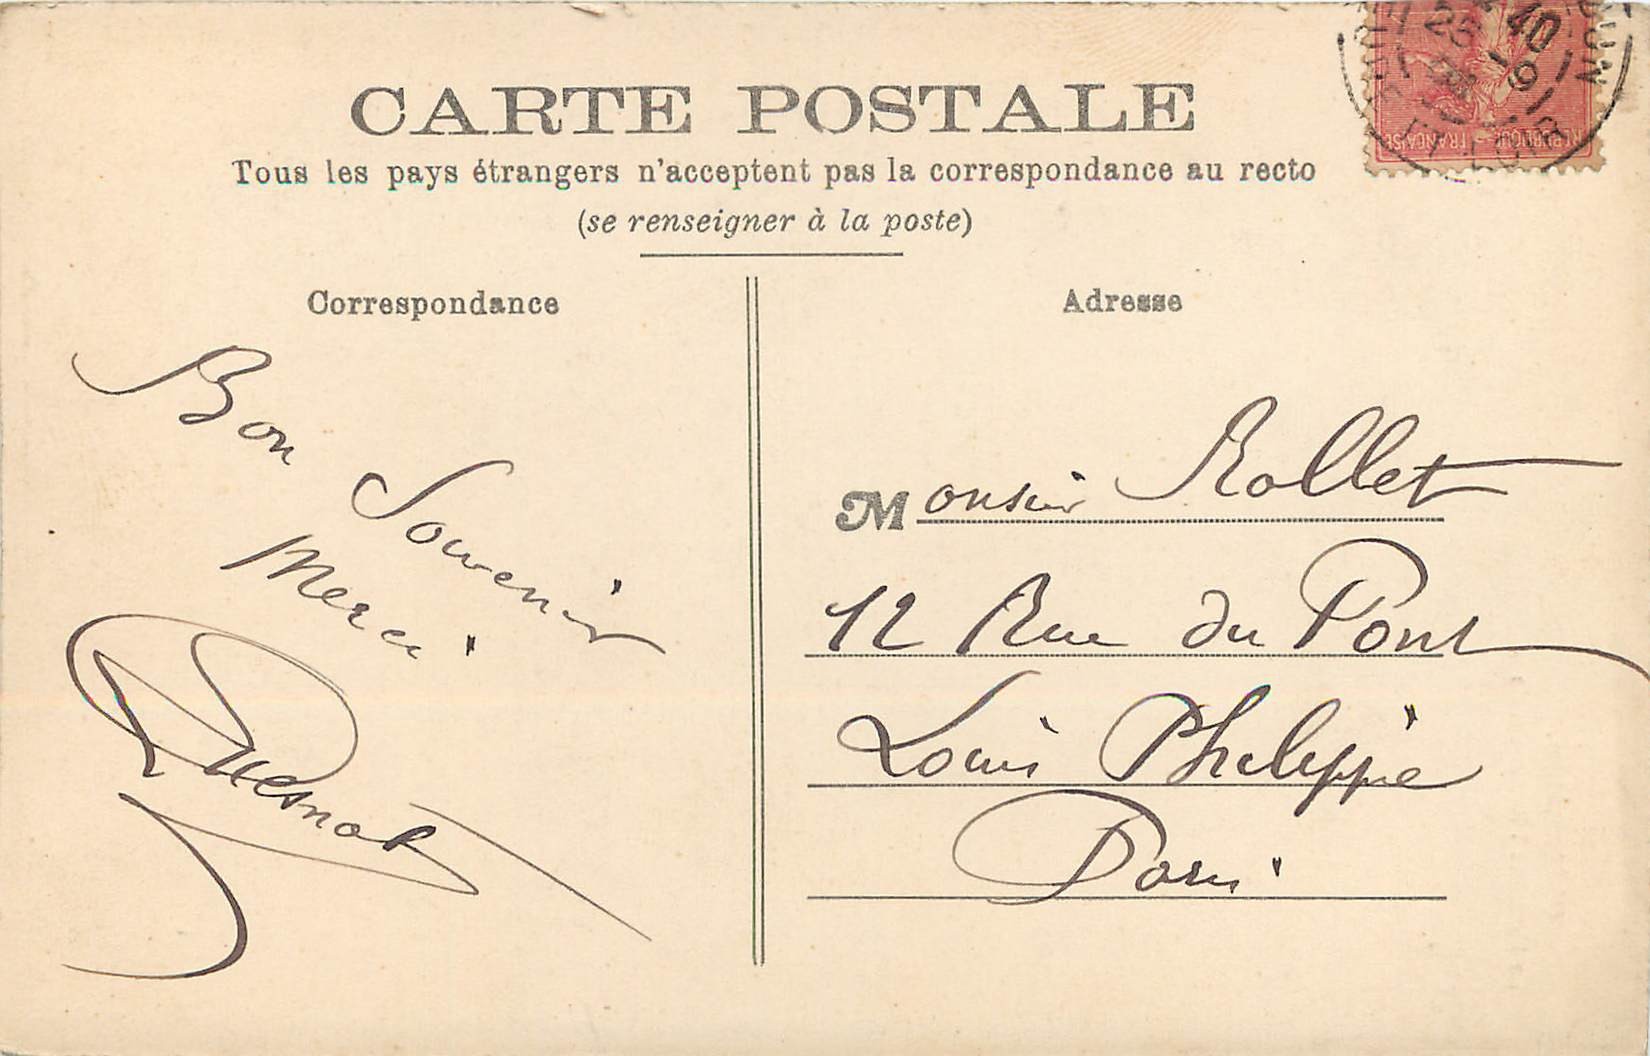 CARTE POSTALE
Tous les pays étrangers n'acceptent pas la correspondance au recto
(se renseigner à la poste)
Correspondance
Bon Souvenir
Merci
Quesnot
Adresse
Monsieur Rollet
12 Rue du Pont
Louis Philippe
Paris
REPUBLIQUE FRANCAISE
25 - 9